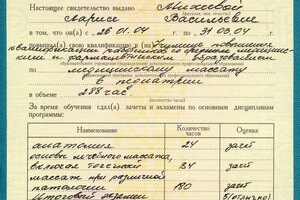 Настоящее свидетельство выдано Михевой
Ларисе Васильевне
с 26.01.04 г. по 31.03.04 г.
повысил(а) свою квалификацию в (на) Училище повышения
квалификации работников со средним медицинским и фармацевтическим образованием
по медицинскому массажу
в педиатрии
в объеме 288 час.
За время обучения сдал(а) зачеты и экзамены по основным дисциплинам
программы:
Наименование Количество часов Оценка
анатомия 24 зачёт
основы лечебного массажа,
включая точечный 84 зачёт
массаж при различной
патологии 180 зачёт
Итоговый экзамен 5 (отлично)